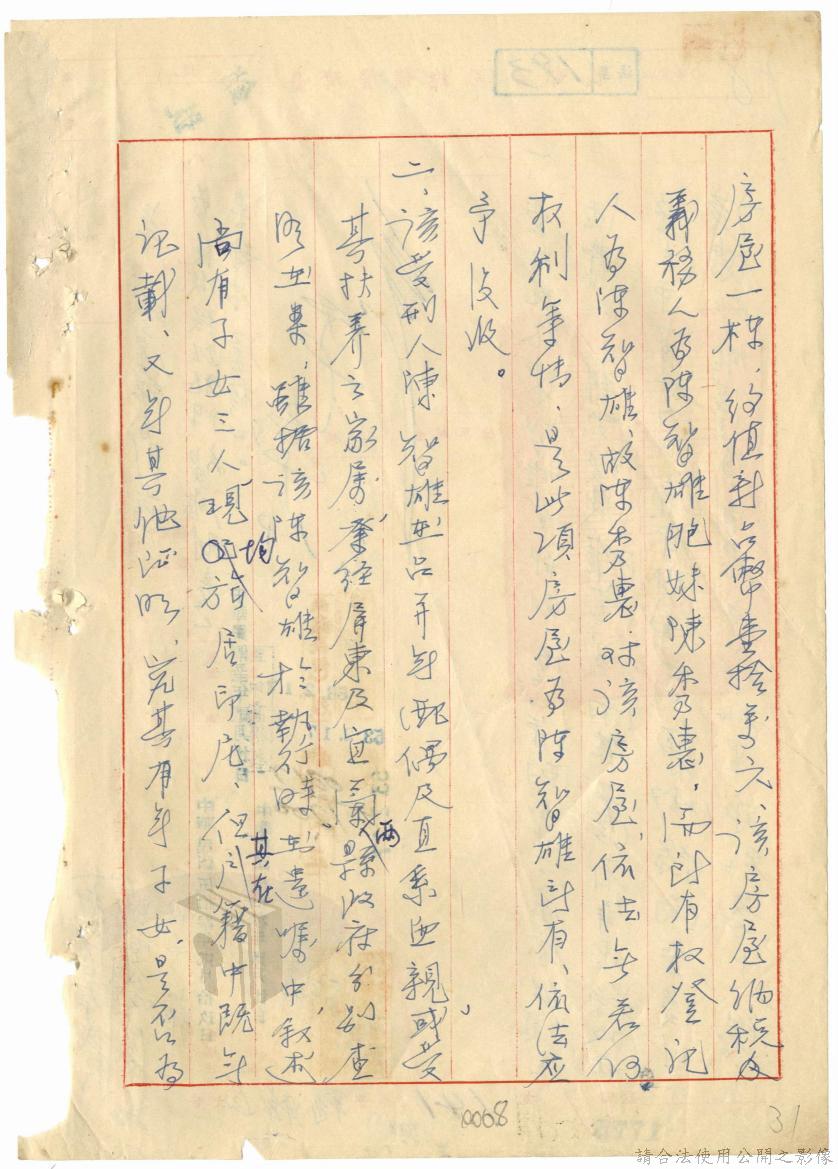 房屋一棟，約值新台幣壹拾萬元，該房屋納稅
義務人為陳智雄胞妹陳秀惠，而所有權登記
人為陳智雄，故陳秀惠對該房屋，依法無若何
权利可言，是此項房屋為陳智雄所有，依法应
予沒收。
二、該受刑人陳智雄在台并無配偶及直系血親或受
其扶养之家属，業經屏東及宜蘭兩縣政府分别查
明在案，雖据該陳智雄於執行時，在遺嘱中，叙述
尚有子女三人現均居印尼，但其在户籍中既無
記載，又無其他证明，究其有無子女，是否為
0068
31
193
請合法使用公開之影像